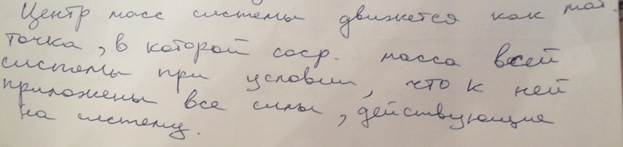 Центр масс системы движется как мат.
точка, в которой соср. масса всей
системы при условии, что к ней
приложены все силы, действующие
на систему.